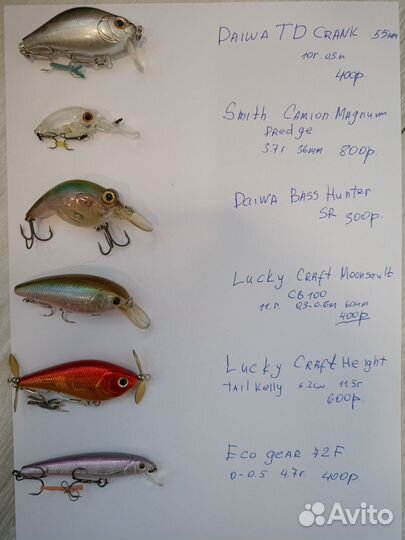 DAIWA TD CRANK 55мм
10г 0,5м
400р.
Smith Camion Magnum
Dredge
3.7г 36мм 800р.
DAIWA BASS Hunter
SR 300р.
Lucky Craft Moonsault
CB100
11.г 0,3-0.6м 60мм
400р
Lucky Craft Height
tail Kelly 6.2см 11.5г
600р.
Eco gear 72F
0-0.5 4.7г 400р.
Avito